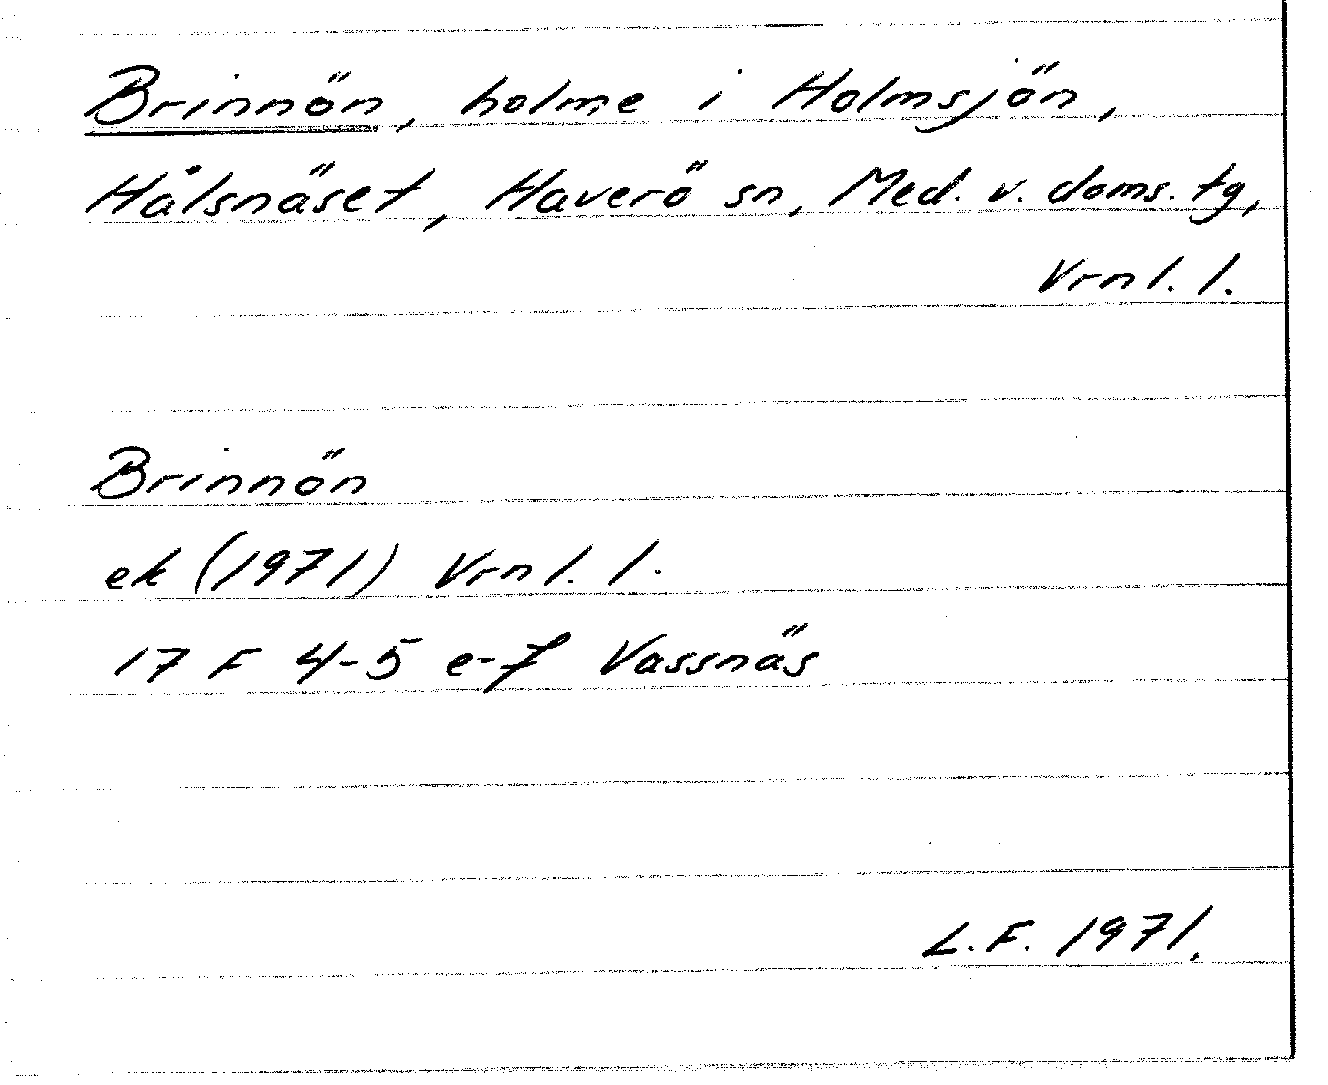 Brinnön, holme i Holmsjön,
Hålsnäset, Haverö sn, Med. v. doms. tg,
Vrml. l.
Brinnön
ek (1971) Vrml. l.
17 F 4-5 e-f Vassnäs
L.F. 1971.